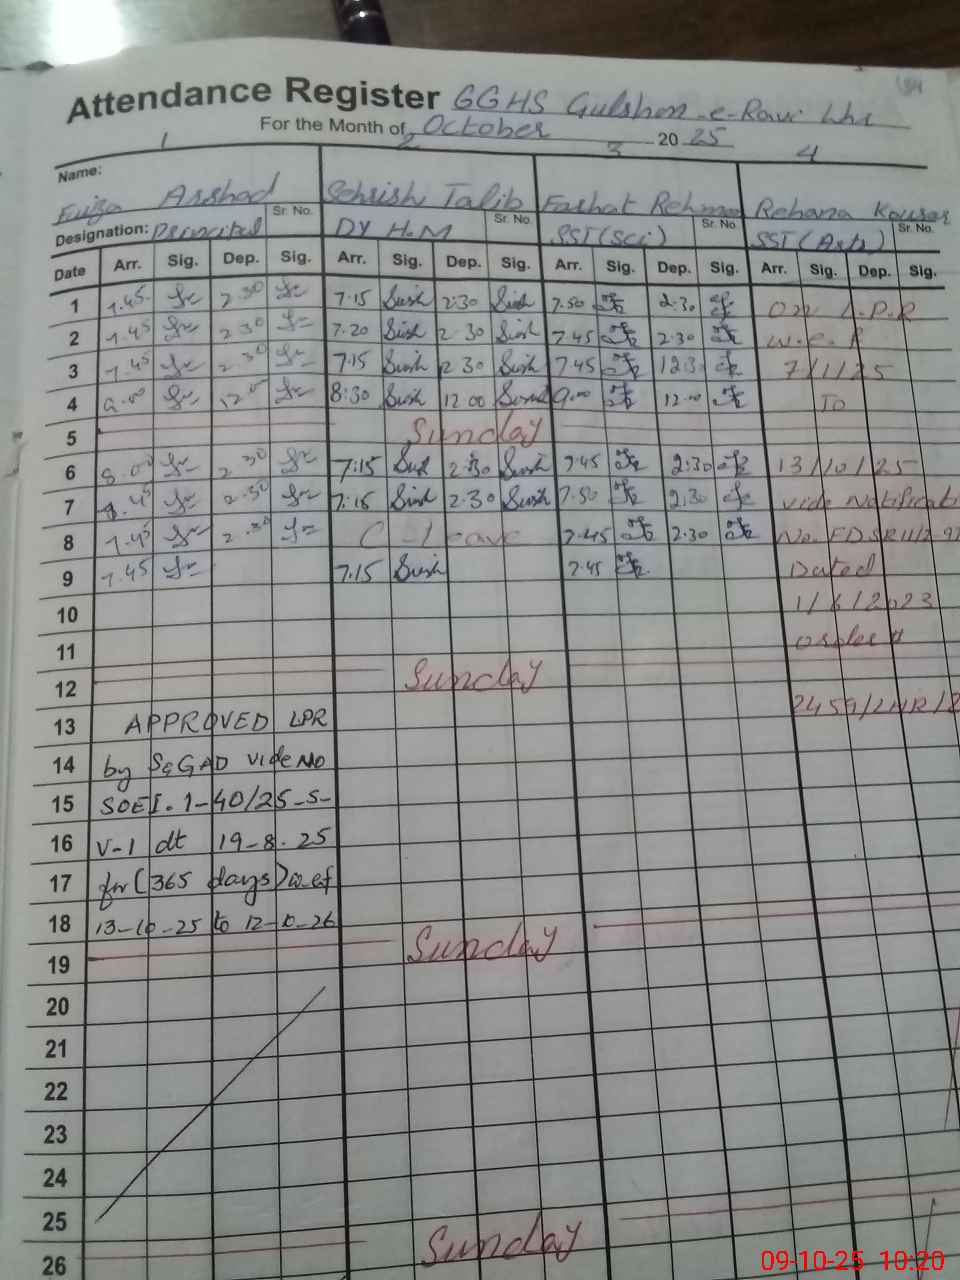 Attendance Register GGHS Gulshan-e-Ravi Lhr
For the Month of October 2025
1 2 3 4
Name:
Faiza Arshad Sehrish Talib Farhat Rehman Rehana Kousar
Sr. No. Sr. No. Sr. No. Sr. No.
Designation: Principal DY H.M SST(Sci) SST(Arts)
Date Arr. Sig. Dep. Sig. Arr. Sig. Dep. Sig. Arr. Sig. Dep. Sig. Arr. Sig. Dep. Sig.
1 7.45 2 30 7.15 2:30 7.50 2.30 On L.P.R
2 7.45 2 30 7.20 2 30 7.45 2.30 w.e.f
3 7.45 2 30 7.15 2 30 7.45 12.3 7/1/25
4 9.00 12 0 8:30 12 00 9.00 12.00 To
5 Sunday
6 8.00 2 30 7:15 2:30 7.45 2:30 13/10/25
7 7.45 2.30 7:15 2.30 7.50 2.30 vide Notificati
8 7.45 2.30 C-leave 7.45 2.30 No.
9 7.45 7.15 7.45 Dated
10 1/6/2023
11 order #
12 Sunday 2459/LHR/2
13 APPROVED LPR
14 by S&GAD vide No
15 SOEI.1-40/25-S-
16 V-1 dt 19-8.25
17 for (365 days) w.ef
18 13-10-25 to 12-10-26
19 Sunday
20
21
22
23
24
25
26 Sunday
09-10-25 10:20